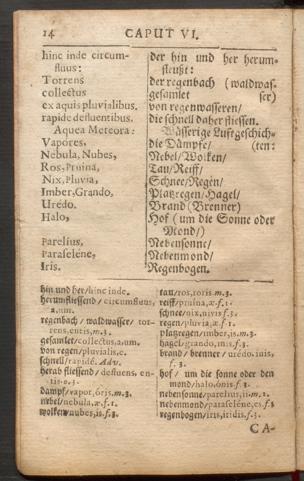 14 CAPUT VI.
hinc inde circum-
fluus:
Torrens
collectus
ex aquis pluvialibus.
rapide defluentibus.
Aquea Meteora:
Vapores,
Nebula, Nubes,
Ros, Pruina,
Nix, Pluvia,
Imber, Grando,
Uredo.
Halo,
Parelius,
Paraselene,
Iris.
der hin und her herum-
fleußt:
der regenbach (waldwas-
gesamlet ser)
von regenwasseren/
die schnell daher fliessen.
Wässerige Luftgeschich-
die Dämpfe/ (ten:
Nebel/Wolken/
Tau/Reiff/
Schnee/Regen/
Platzregen/Hagel/
Brand (Brenner)
Hof (um die Sonne oder
Mond/)
Nebensonne/
Nebenmond/
Regenbogen.
hin und her/hinc inde.
herumfliessend/circumfluus,
a, um.
regenbach/ waldwasser/ tor-
rens, entis, m. 3.
gesamlet/collectus, a, um.
von regen/pluvialis, e.
schnell/rapidè. Adv.
herab fliessend/ defluens, en-
tis. o. 3.
dampf/vapor, óris. m. 3.
nebel/nebula, æ. f. 1.
wolken/nubes, is. f. 3.
tau/ros, roris. m. 3.
reiff/pruina, æ. f. 1.
schnee/nix, nivis. f. 3.
regen/pluvia, æ. f. 1.
platzregen/imber, is. m. 3.
hagel/grando, inis. f. 3.
brand/ brenner/ urédo, inis,
f. 3.
hof/ um die sonne oder den
mond/halo, ónis. f. 3.
nebensonne/parelius, ii. m. 2.
nebenmond/paraseléne, es. f. 1
regenbogen/iris, iridis. f. 3.
CA-